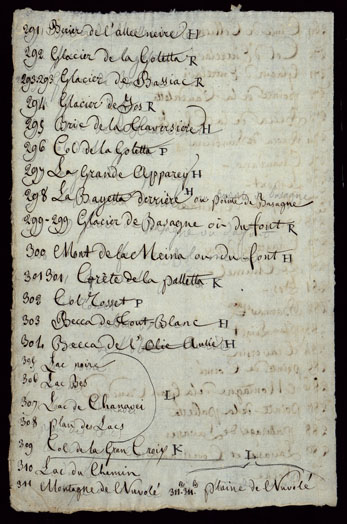 291 Becier de l'allée noire H
292 Glacier de la Goletta R
293-293 Glacier de Bassiac R
294 Glacier de Gos R
295 Bric de la Traversière H
296 Col de la Goletta P
297 La Grande Apparey H
298 La Bayetta derrière H ou pointe de Basagne
299-299 Glacier de Basagne où du font R
300 Mont de la Meina ou du font H
301 301 Corète de la palletta K
302 Col Rosset P
303 Becca de Tout-Blanc H
304 Becca de l'Olie Aulie H
305 Lac noire
306 Lac Bes
307 Lac de Chanavei L
308 Plan des Lacs
309 Col de la Gran Croix K
310 Lac du Chemin L
311 Montagne de Nuvolé 311-311 plaine de Nuvolé